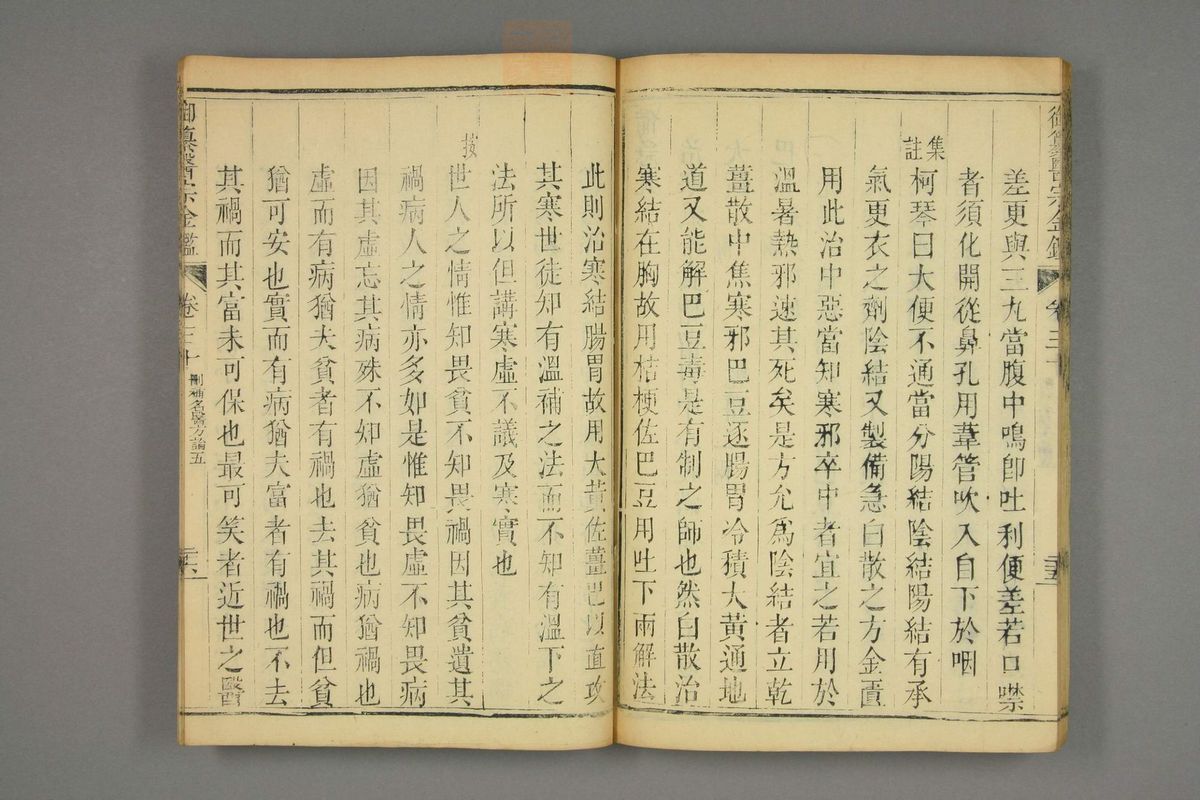 御纂醫宗金鑑
卷三十
差更與三九當腹中鳴卽吐利便差若口噤
者須化開從鼻孔用葦管吹入自下於咽
集註
柯琴曰大便不通當分陽結陰結陽結有承
氣更衣之劑陰結又製備急白散之方金匱
用此治中惡當知寒邪卒中者宜之若用於
溫暑熱邪速其死矣是方允爲陰結者立乾
薑散中焦寒邪巴豆逐腸胃冷積大黃通地
道又能解巴豆毒是有制之師也然白散治
寒結在胸故用桔梗佐巴豆用吐下兩解法
此則治寒結腸胃故用大黃佐薑巴以直攻
其寒世徒知有溫補之法而不知有溫下之
法所以但講寒虛不議及寒實也
按
世人之情惟知畏貧不知畏禍因其貧遺其
禍病人之情亦多如是惟知畏虛不知畏病
因其虛忘其病殊不知虛猶貧也病猶禍也
虛而有病猶夫貧者有禍也去其禍而但貧
猶可安也實而有病猶夫富者有禍也不去
其禍而其富未可保也最可笑者近世之醫
御纂醫宗金鑑
卷三十
刪補名醫方論五